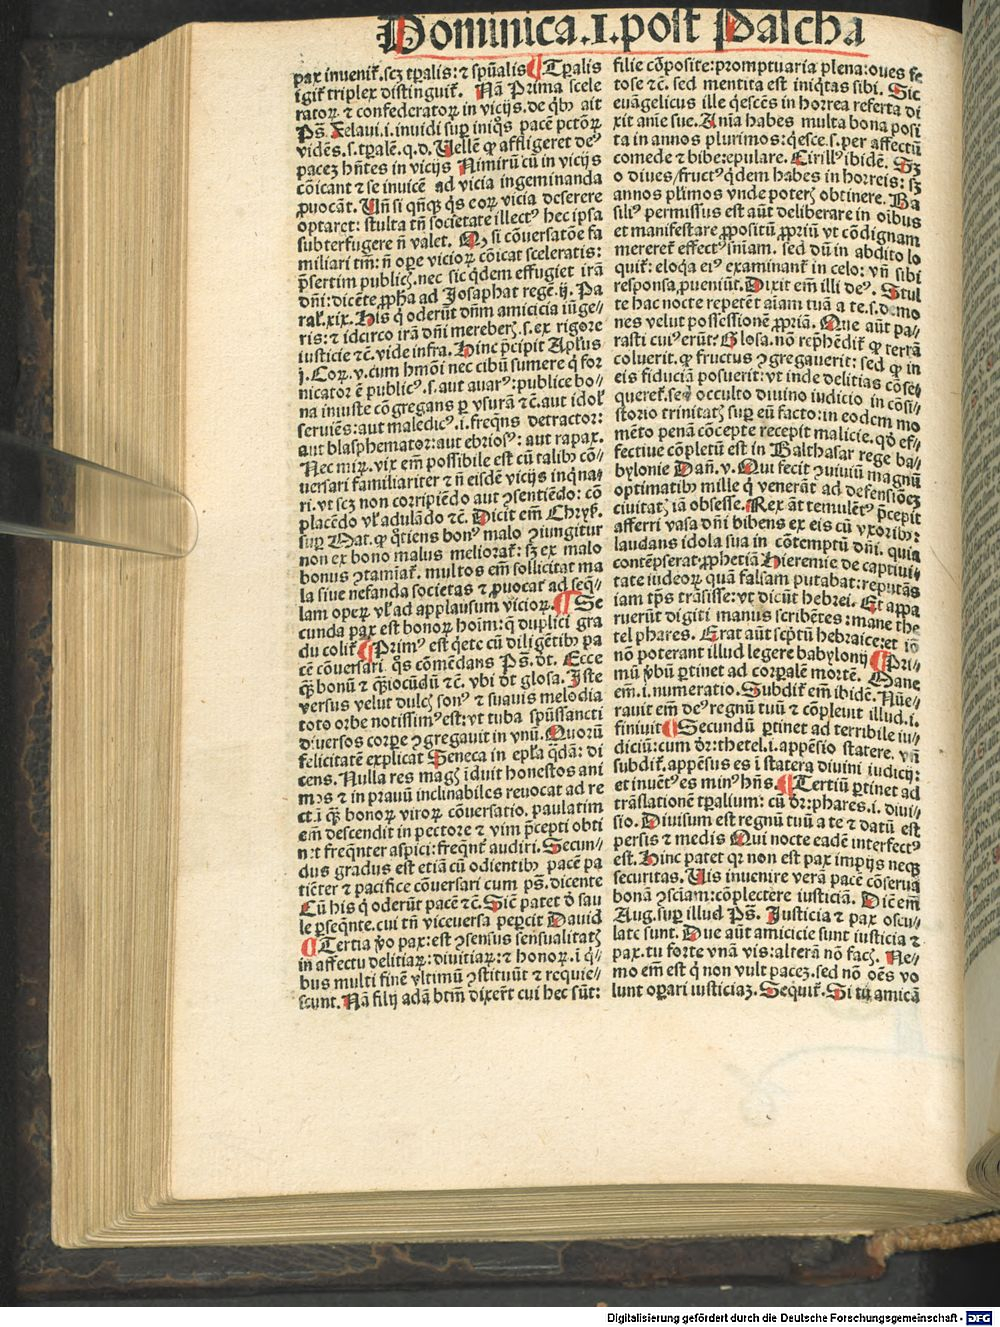 Dominica .I. post Pascha
pax inuenit᷑. scꝫ tꝑalis: ⁊ spũalis ¶ Tꝑalis
igit᷑ triplex distinguit᷑. Nã Prima scele
ratoꝝ ⁊ confederatoꝝ in vicijs. de qͥbꝰ ait
Ps̃. Zelaui .i. inuidi suꝑ iniqͦs pacẽ pctõꝝ
vidẽs. s. tꝑalẽ. q. d. Vellẽ ꝙ affligeret deꝰ
paceꝫ hñtes in vicijs Nimirũ cũ in vicijs
cõicant ⁊ se inuicẽ ad vicia ingeminanda
ꝓuocãt. Vñ si qñqꝫ qͥs eoꝝ vicia deserere
optaret: stulta tñ societate illectꝰ hec ipsa
subterfugere ñ valet. si cõuersatõe fa
miliari tm̃: ñ oꝑe vicioꝝ cõicat sceleratis:
p̃sertim publicꝭ. nec sic qͥdem effugiet irã
dñi: dicẽte ꝓpħa ad Josaphat regẽ .ij. Pa
ral᷑. xix. His qͥ oderũt dñm amicicia iũge⸗
ris: ⁊ idcirco irã dñi merebarꝭ. s. ex rigore
iusticie ⁊c. vide infra. Hinc p̃cipit Apl̃us
j. Coꝝ. v. cum hmõi nec cibũ sumere qͥ for
nicator ẽ publicꝰ. s. aut auarꝰ: publice bo⸗
na iniuste cõgregans ꝑ vsurã ⁊c. aut idol᷑
seruiẽs: aut maledicꝰ. i. freq̃ns detractor:
aut blasphemator: aut ebriosꝰ: aut rapax.
Nec miꝝ. vix em̃ possibile est cũ talibꝰ cõ⸗
uersari familiariter ⁊ ñ eisdẽ vicijs inqͥna⸗
ri. vt scꝫ non corripiẽdo aut ꝯsentiẽdo: cõ
placẽdo vl᷑ adulãdo ⁊c. Dicit em̃ Chrys᷑.
suꝑ Mat. ꝙ qͦtiens bonꝰ malo ꝯiungitur
non ex bono malus meliorat᷑: sꝫ ex malo
bonus ꝯtamĩat᷑. multos em̃ sollicitat ma
la siue nefanda societas ⁊ ꝓuocat ad seq̃⸗
lam oꝑeꝝ vl᷑ ad applausum vicioꝝ. ¶ Se
cunda pax est honoꝝ hoĩm: q̃ duplici gra
du colit᷑ ¶ Primꝰ est qͥete cũ diligẽtibꝰ pa
cẽ cõuersari. qͦs cõmẽdans Ps̃. dt. Ecce
qͣꝫ bonũ ⁊ qͣꝫ iocũdũ ⁊c. vbi dt glosa. Iste
versus velut dulcꝭ sonꝰ ⁊ suauis melodia
toto orbe notissimꝰ est: vt tuba spũssancti
diuersos corꝑe ꝯgregauit in vnũ. Quorũ
felicitatẽ explicat Seneca in epl̃a qͣdã: di
cens. Nulla res magꝭ ĩduit honestos ani
mos ⁊ in prauũ inclinabiles reuocat ad re
ct ĩ qͣꝫ bonoꝝ viroꝝ cõuersatio. paulatim
em̃ descendit in pectore ⁊ vim p̃cepti obti
net freq̃nter aspici: freq̃nt᷑ audiri. Secun⸗
dus gradus est etiã cũ odientibꝰ pacẽ pa
tiẽter ⁊ pacifice cõuersari cum ps̃. dicente
Cũ his qͥ oderũt pacẽ ⁊c. Sic̃ patet ð sau
le ꝑseqͣnte. cui tñ viceuersa peꝑcit Dauid
¶ Tertia ꝟo pax: est ꝯsensus sensualitatꝭ
in affectu delitiaꝝ: diuitiaꝝ: ⁊ honoꝝ. ĩ qͥ⸗
bus multi finẽ vltimũ ꝯstituũt ⁊ requie⸗
scunt. Nã filij adã btm̃ dixer̃t cui hec sũt:
filie cõposite: promptuaria plena: oues fe
tose ⁊c. sed mentita est iniqͥtas sibi. Sic
euãgelicus ille qͥescẽs in horrea referta di
xit aĩe sue. Anĩa habes multa bona posi
ta in annos plurimos: qͥesce. s. per affectũ
comede ⁊ bibe: epulare. Cirillꝰ ibidẽ. Sꝫ
o diues / fructꝰ qͥdem habes in horreis: sꝫ
annos pl̃imos vnde poterꝭ obtinere. Ba
siliꝰ permissus est aũt deliberare in oĩbus
et manifestare ꝓpositũ ꝓpriũ vt cõdignam
mereret᷑ effectꝰ sñiam. sed dũ in abdito lo
quit᷑: eloqͥa eiꝰ examinant᷑ in celo: vñ sibi
responsa ꝓueniũt. Dixit em̃ illi deꝰ. Stul
te hac nocte repetẽt aĩam tuã a te. s. demo
nes velut possessionẽ ꝓpriã. Que aũt pa⸗
rasti cuiꝰ erũt: Glosa. nõ rep̃hẽdit᷑ ꝙ terrã
coluerit. ꝙ fructus ꝯgregauerit: sed ꝙ in
eis fiduciã posuerit: vt inde delitias cõse⸗
queret᷑. sed occulto diuino iudicio in cõsi⸗
storio trinitatꝭ suꝑ eũ facto: in eodem mo
mẽto penã cõcepte recepit malicie. qð ef⸗
fectiue cõpletũ est in Balthasar rege ba⸗
bylonie Dañ. v. Qui fecit ꝯuiuiũ magnũ
optimatibꝰ mille qͥ venerãt ad defensiõeꝫ
ciuitatꝭ iã obsesse. Rex ãt temulẽtꝰ p̃cepit
afferri vasa dñi bibens ex eis cũ vxoribꝰ:
laudans idola sua in cõtemptũ dñi. quia
contẽpserat ꝓphetiã Hieremie de captiui⸗
tate iudeoꝝ quã falsam putabat: reputãs
iam tp̃s trãsisse: vt dicũt hebrei. Et appa
ruerũt digiti manus scribẽtes: mane the
tel phares. Erat aũt scp̃tũ hebraice: et iõ
nõ poterant illud legere babylonij ¶ Pri⸗
mũ ꝟbũ ꝑtinet ad corꝑalẽ mortẽ. Mane
em̃. i. numeratio. Subdit᷑ em̃ ibidẽ. Nũe⸗
rauit em̃ deꝰ regnũ tuũ ⁊ cõpleuit illud. i.
finiuit ¶ Secundũ ꝑtinet ad terribile iu⸗
diciũ: cum dr̃: thetel. i. appẽsio statere. vñ
subdit᷑. appẽsus es ĩ statera diuini iudicij:
et inuẽtꝰ es minꝰ hñs. ¶ Tertiũ ꝑtinet ad
trãslationẽ tꝑalium: cũ dr̃: phares. i. diui⸗
sio. Diuisum est regnũ tuũ a te ⁊ datũ est
persis ⁊ medis Qui nocte eadẽ interfectꝰ
est. Hinc patet qꝛ non est pax impijs neqꝫ
securitas. Vis inuenire verã pacẽ cõserua
bonã ꝯsciam: cõplectere iusticiã. Dic̃ em̃
Aug. suꝑ illud Ps̃. Justicia ⁊ pax oscu⸗
late sunt. Due aũt amicicie sunt iusticia ⁊
pax. tu forte vnã vis: alterã nõ facꝭ. Ne⸗
mo em̃ est qͥ non vult paceꝫ. sed nõ oẽs vo
lunt oꝑari iusticiaꝫ. Sequit᷑. Si tu amicã
Digitalisierung gefördert durch die Deutsche Forschungsgemeinschaft - DFG